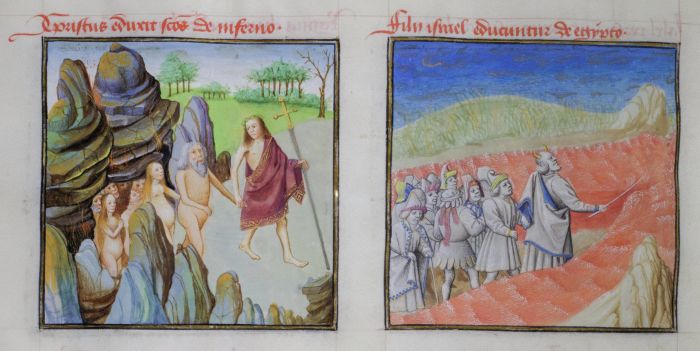 Cristus eduxit scōs de inferno.
Filij israel educuntur de egipto.